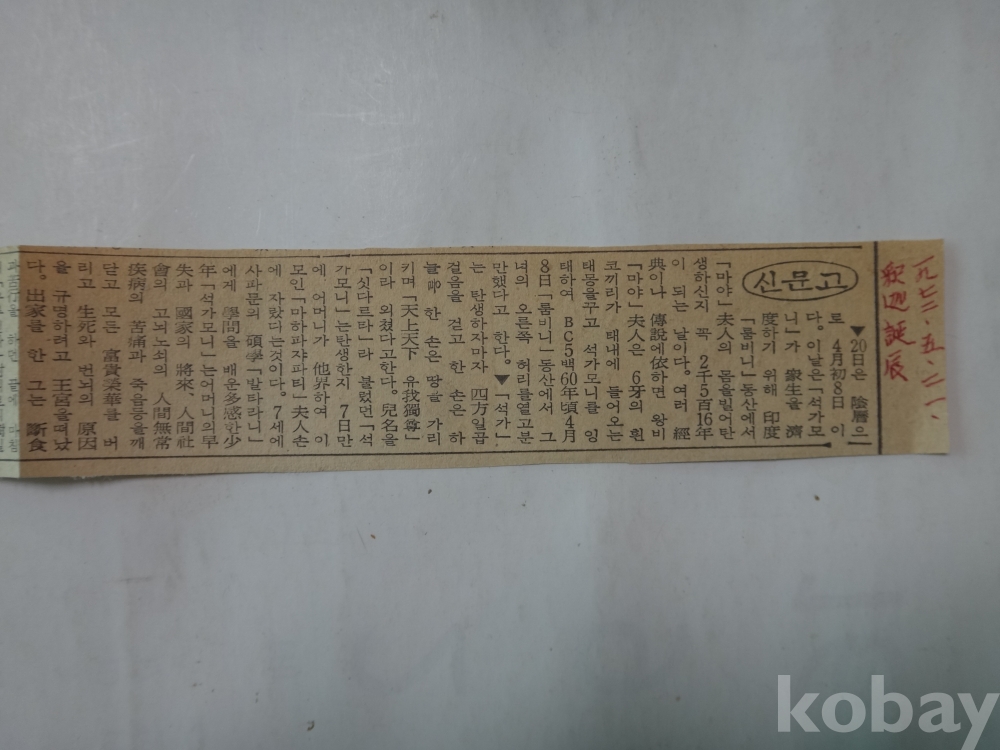 一九七三、五、二一、
釈迦誕辰
신문고
▼20日은 陰曆으
로 4月初8日 이
다。이날은「석가모
니」가 衆生을 濟
度하기 위해 印度
「룸비니」동산에서
「마야」夫人의 몸을빌어탄
생하신지 꼭 2千5百16年
이 되는 날이다。여러 經
典이나 傳說에依하면 왕비
「마야」夫人은 6牙의 흰
코끼리가 태내에 들어오는
태몽을꾸고 석가모니를 잉
태하여 BC5백60年頃4月
8日「룸비니」동산에서 그
녀의 오른쪽 허리를열고분
만했다고 한다。▼「석가」
는 탄생하자마자 四方일곱
걸음을 걷고 한 손은 하
한 손은 땅을 가리
키며「天上天下 유我獨尊」
이라 외쳤다고한다。兒名을
「싯다르타」라 불렸던「석
가모니」는탄생한지 7日만
에 어머니가 他界하여 이
모인「마하파쟈파티」夫人손
에 자랐다는것이다。7세에
사파문의 碩學「발타라니」
에게 學問을 배운多感한少
年「석가모니」는어머니의早
失과 國家의 將來、人間社
會의 고뇌노쇠의 人間無常
疾病의 苦痛과 죽음등을깨
닫고 모든 富貴美華를 버
리고 生死와 번뇌의 原因
을 규명하려고 王宮을떠났
다。出家를 한 그는 斷食
kobay